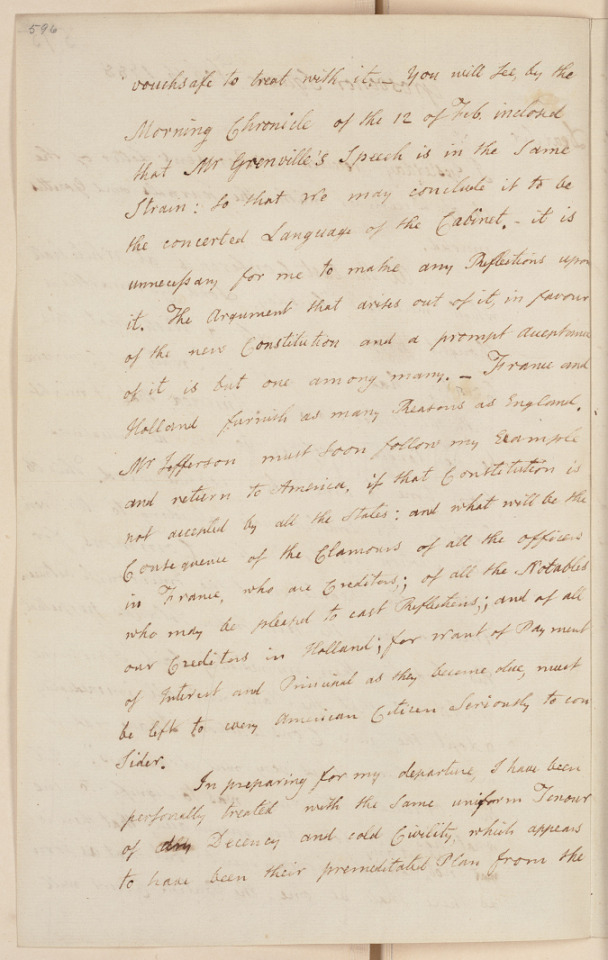 596
vouchsafe to treat with it — You will see, by the
Morning Chronicle of the 12 of Feb. inclosed
that Mr Grenville's Speech is in the Same
Strain: so that we may conclude it to be
the concerted Language of the Cabinet. - it is
unnecessary for me to make any Reflections upon
it. The Argument that arises out of it, in favour
of the new Constitution and a prompt acceptance
of it is but one among many. — France and
Holland furnish as many Reasons as England.
Mr Jefferson must soon follow my Example
and return to America, if that Constitution is
not accepted by all the States: and what will be the
Consequence of the Clamours of all the officers
in France, who are Creditors; of all the Notables
who may be pleased to cast Reflections; and of all
our Creditors in Holland; for want of Payment
of Interest and Principal as they become due, must
be left to every American Citizen Seriously to con
Sider.
In preparing for my departure, I have been
personally treated with the Same uniform Tenour
of Decency and cold Civility, which appears
to have been their premeditated Plan from the